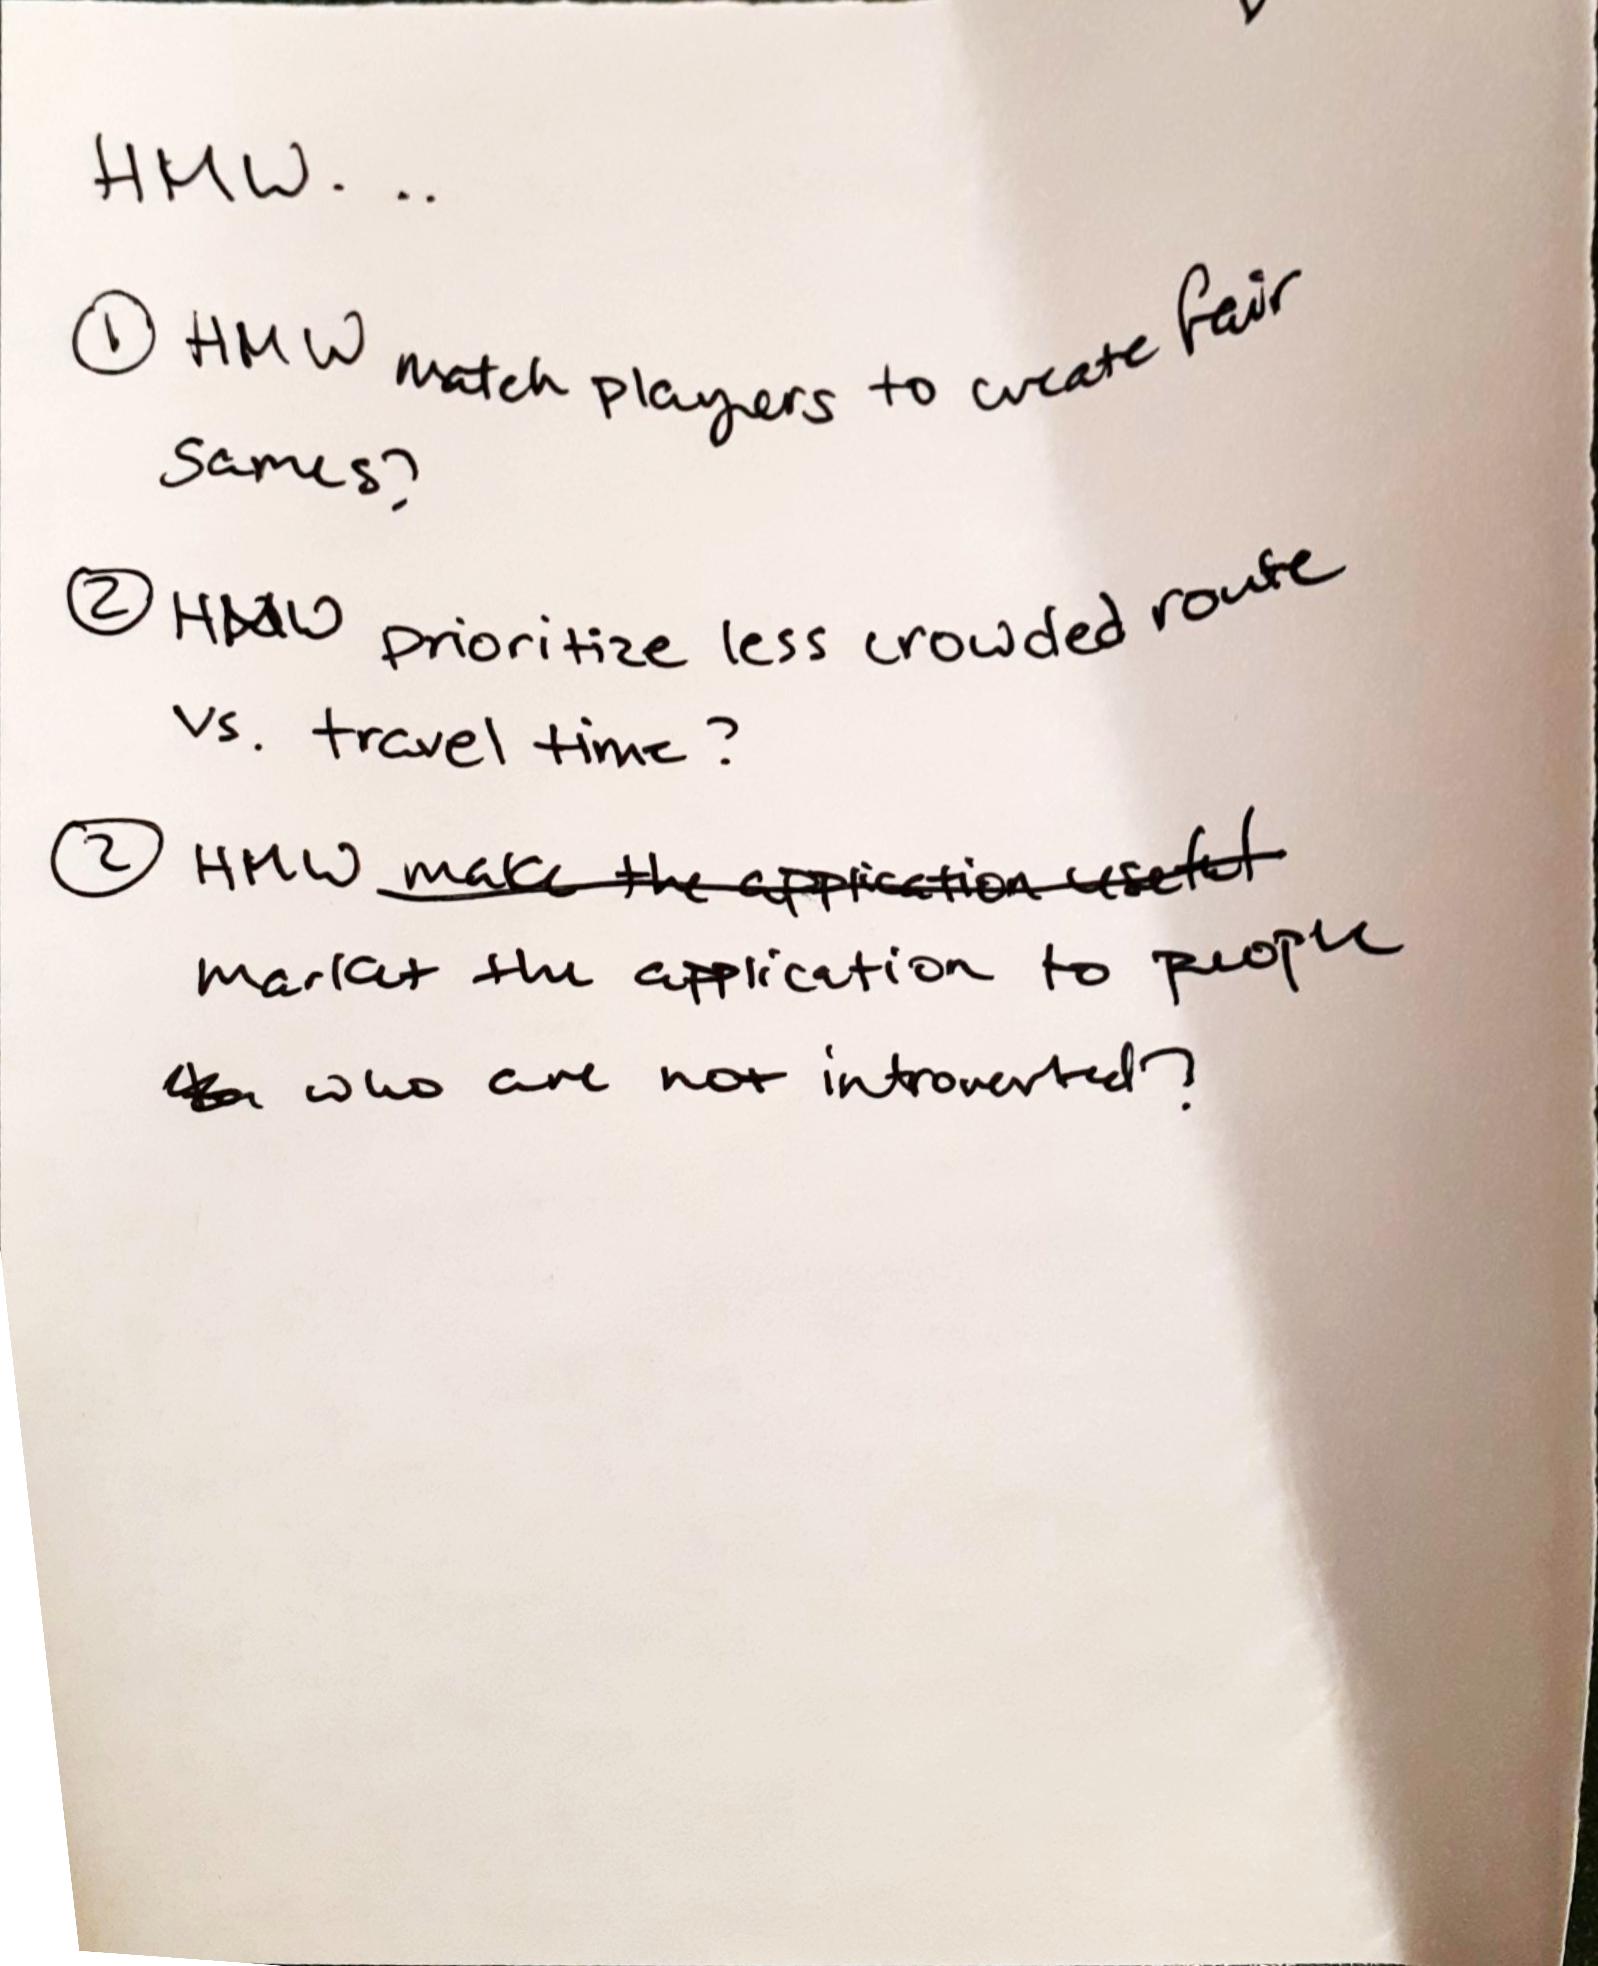 HMW...
① HMW match players to create fair
games?
② HMW prioritize less crowded route
vs. travel time?
② HMW ~~make the application useful~~
market the application to people
who are not introverted?